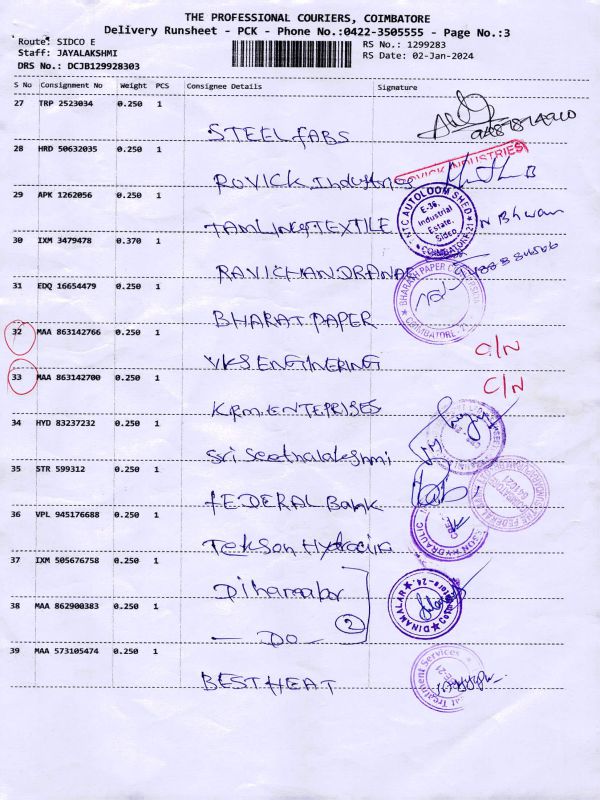 THE PROFESSIONAL COURIERS, COIMBATORE
Delivery Runsheet - PCK - Phone No.:0422-3505555 - Page No.:3
Route: SIDCO E
RS No.: 1299283
Staff: JAYALAKSHMI
RS Date: 02-Jan-2024
DRS No.: DCJB129928303
S No Consignment No Weight PCS Consignee Details Signature
27 TRP 2523034 0.250 1
STEEL FABS
28 HRD 50632035 0.250 1
ROVICK Industries
ROVICK INDUSTRIES
29 APK 1262056 0.250 1
TEXTILE
NTC AUTOLOOM SHED
E-36, Industrial Estate, Sidco
COIMBATORE-21
30 IXM 3479478 0.370 1
RAVICHANDRAN
31 EDQ 16654479 0.250 1
BHARAT PAPER
BHARATH PAPER
COIMBATORE
32 MAA 863142766 0.250 1
VKS ENGINEERING
C/N
33 MAA 863142700 0.250 1
K.R.M. ENTEPRISES
C/N
34 HYD 83237232 0.250 1
Sri Seethalakshmi
35 STR 599312 0.250 1
FEDERAL Bank
36 VPL 945176688 0.250 1
Tekson Hydraulic
HYDRAULIC
37 IXM 505676758 0.250 1
Dinamalar
DINAMALAR
38 MAA 862900383 0.250 1
— DO —
2
39 MAA 573105474 0.250 1
BEST HEAT
Treatment Services